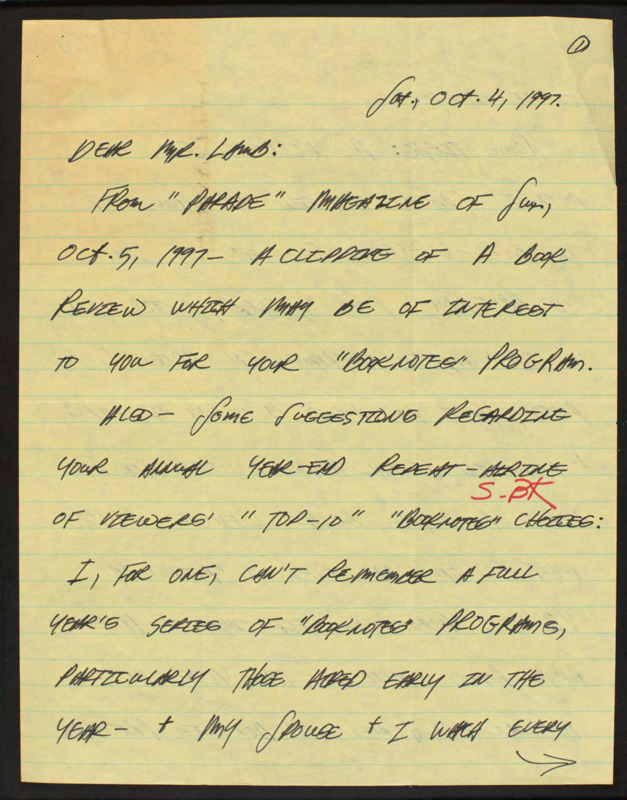 ①
Sat., Oct. 4, 1997.
DEAR MR. LAMB:
FROM "PARADE" MAGAZINE OF Sun.,
OCT. 5, 1997— A CLIPPING OF A BOOK
REVIEW WHICH MAY BE OF INTEREST
TO YOU FOR YOUR "BOOKNOTES" PROGRAM.
ALSO— SOME SUGGESTIONS REGARDING
YOUR ANNUAL YEAR-END REPEAT-AIRING
S-BK
OF VIEWERS' "TOP-10" "BOOKNOTES" CHOICES:
I, FOR ONE, CAN'T REMEMBER A FULL
YEAR'S SERIES OF "BOOKNOTES" PROGRAMS,
PARTICULARLY THOSE AIRED EARLY IN THE
YEAR— + MY SPOUSE + I WATCH EVERY
→